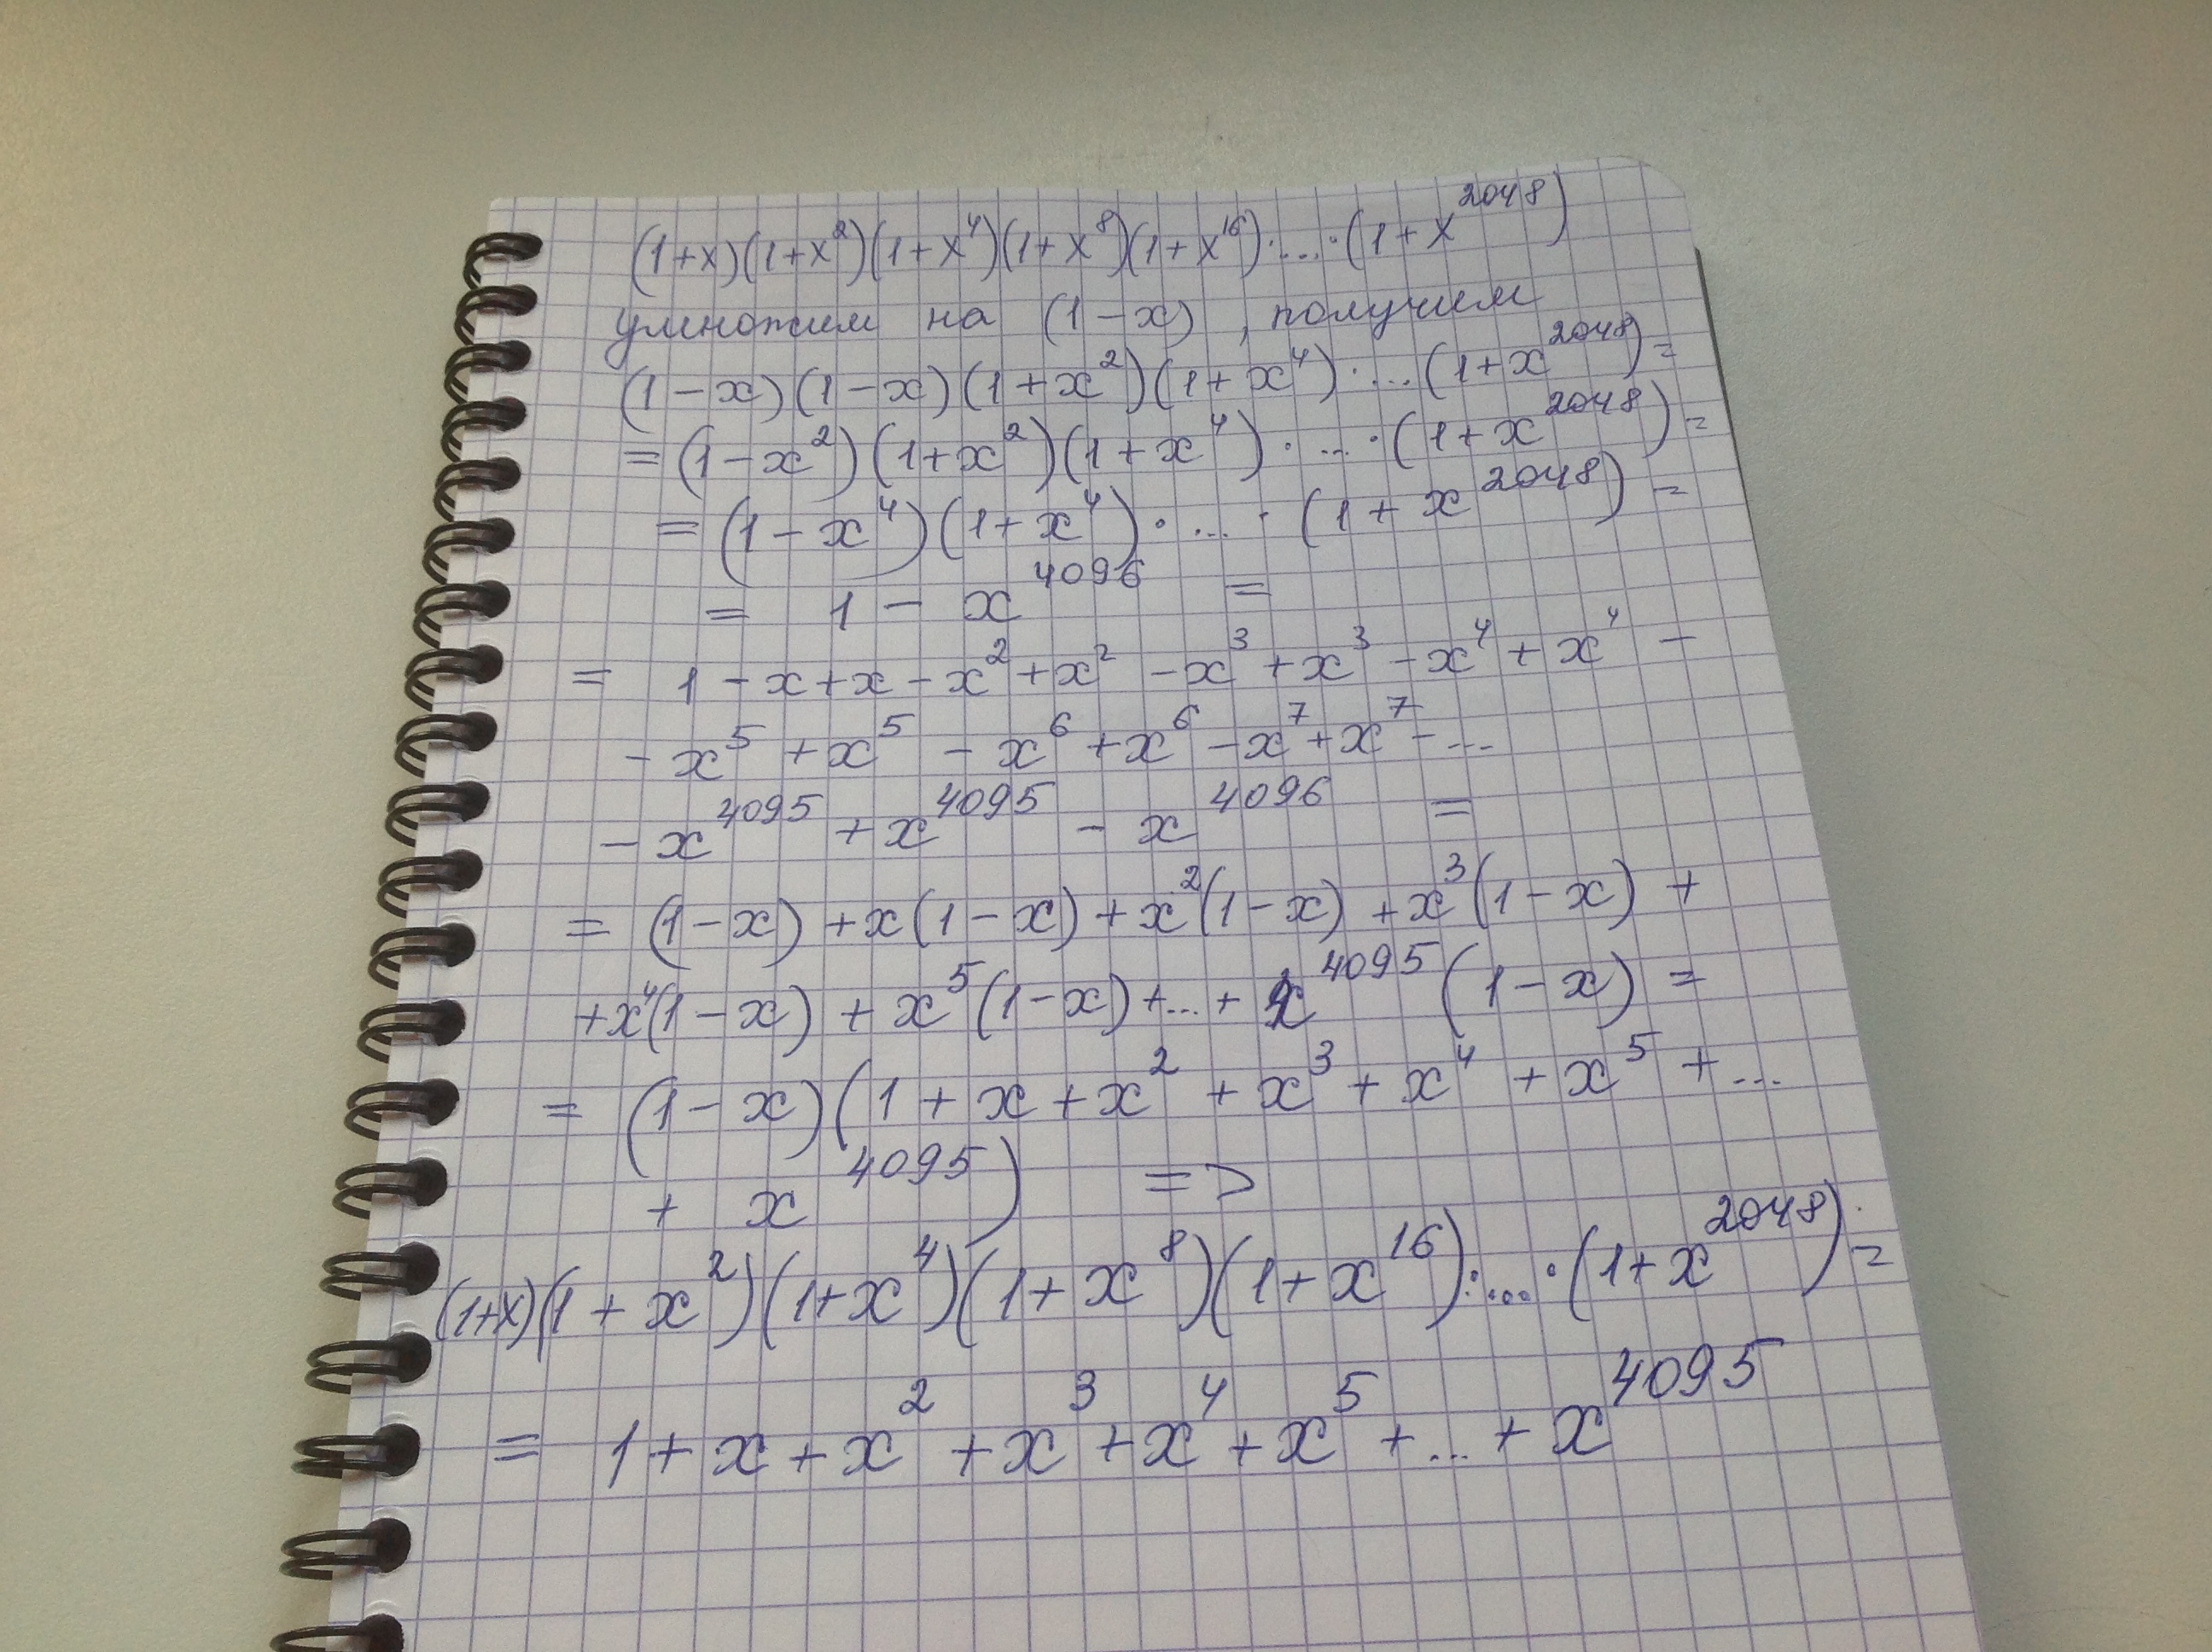 (1+x)(1+x²)(1+x⁴)(1+x⁸)(1+x¹⁶)·...·(1+x²⁰⁴⁸)
умножим на (1-x), получим
(1-x)(1-x)(1+x²)(1+x⁴)·...(1+x²⁰⁴⁸)=
=(1-x²)(1+x²)(1+x⁴)·...·(1+x²⁰⁴⁸)=
=(1-x⁴)(1+x⁴)·...·(1+x²⁰⁴⁸)=
= 1-x⁴⁰⁹⁶ =
= 1-x+x-x²+x²-x³+x³-x⁴+x⁴-
-x⁵+x⁵-x⁶+x⁶-x⁷+x⁷-...
-x⁴⁰⁹⁵+x⁴⁰⁹⁵-x⁴⁰⁹⁶ =
= (1-x)+x(1-x)+x²(1-x)+x³(1-x)+
+x⁴(1-x)+x⁵(1-x)+...+x⁴⁰⁹⁵(1-x)=
= (1-x)(1+x+x²+x³+x⁴+x⁵+...
+x⁴⁰⁹⁵) =>
(1+x)(1+x²)(1+x⁴)(1+x⁸)(1+x¹⁶)·...·(1+x²⁰⁴⁸)=
= 1+x+x²+x³+x⁴+x⁵+...+x⁴⁰⁹⁵